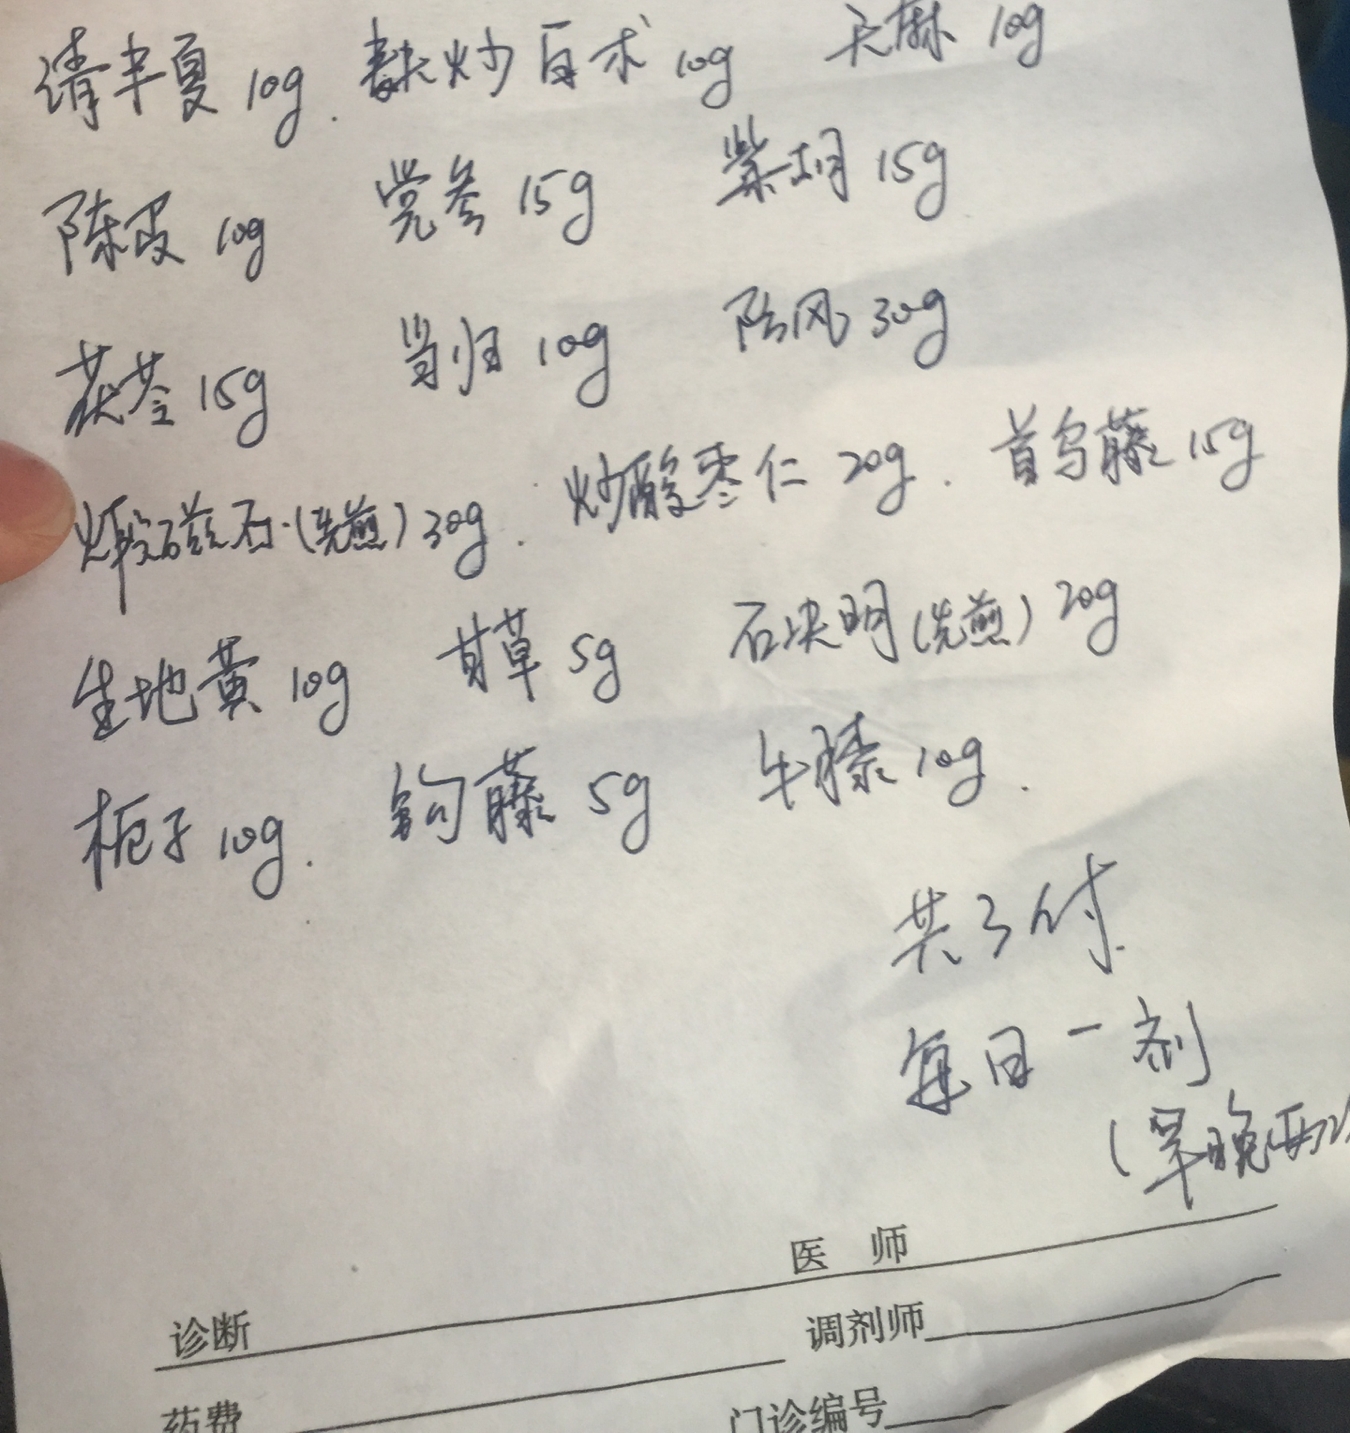 清半夏 10g. 麸炒白术 10g 天麻 10g
陈皮 10g 党参 15g 柴胡 15g
茯苓 15g 当归 10g 防风 30g
煅磁石.(先煎) 30g. 炒酸枣仁 20g. 首乌藤 15g
生地黄 10g 甘草 5g 石决明(先煎) 20g
栀子 10g. 钩藤 5g 牛膝 10g.
共3付.
每日一剂
(早晚两次
医 师
诊断
调剂师
药费
门诊编号